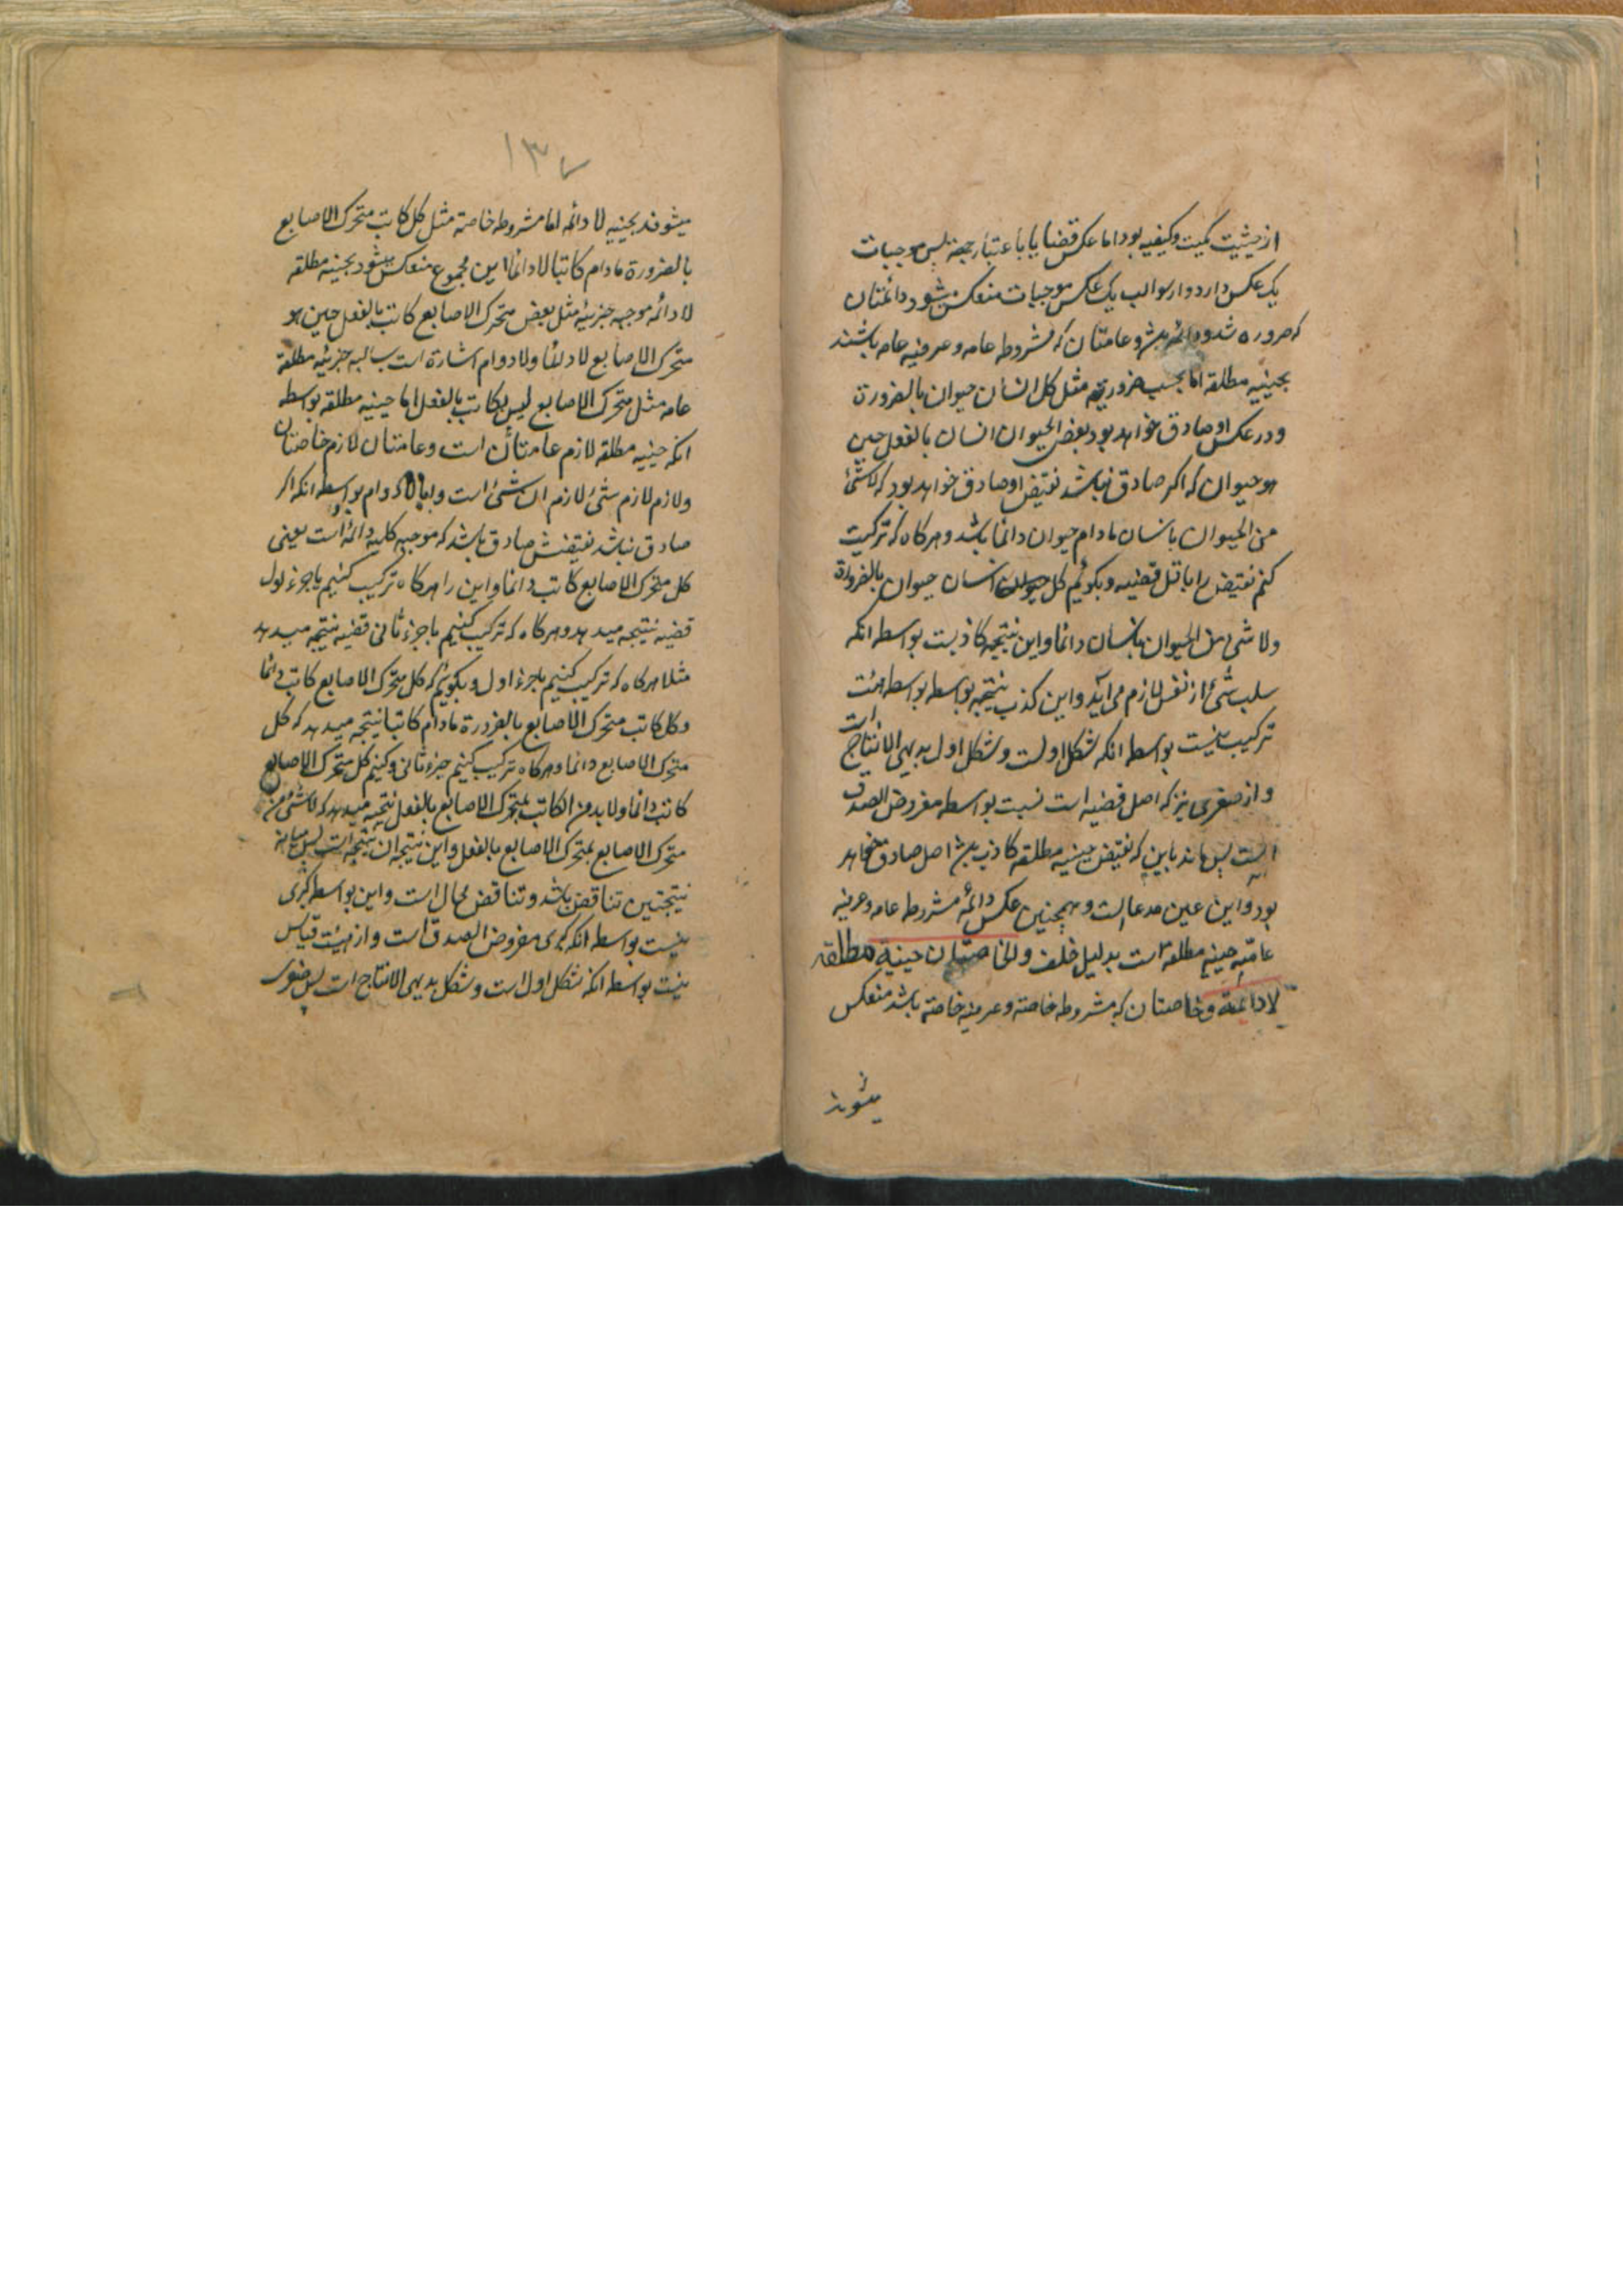 از حیثیت کمیت و کیفیه بود اما عکس قضایا باعتبار جهة پس موجبات
یک عکس دارد و از سوالب یک عکس موجبات منعکس میشود دائمتان
که ضروره شود و دائمه باشد و عامتان که مشروطه عامه و عرفیه عامه باشند
بحینیه مطلقه اما بحسب ضروریه مثل کل انسان حیوان بالضرورة
و در عکس او صادق خواهد بود بعض الحیوان انسان بالفعل حین
هو حیوان که اکر صادق نباشد نقیض او صادق خواهد بود که لاشئ
من الحیوان بانسان مادام حیوان دائما باشد و هرکاه که ترکیب
کنم نقیض را با قضیه و بکوئیم کل انسان حیوان بالضرورة
ولا شئ من الحیوان بانسان دائما و این نتیجه کاذبست بواسطه انکه
سلب شئ از نفس لازم می آید و این کذب نتیجه بواسطه بواسطه هیئت
ترکیب نیست بواسطه انکه شکل اولست و شکل اول بدیهی الانتاج است
و از صغری نیز که اصل قضیه است نیست بواسطه مفروض الصدق
است پس ماند باین که نقیض حینیه مطلقه کاذب باشد اصل صادق خواهد
بود و این عین مدعا است و همچنین عکس دائمه مشروطه عامه و عرفیه
عامه حینیه مطلقه است بدلیل خلف وللخاصتان حینیة مطلقه
لادائمة و خاصتان که مشروطه خاصه و عرفیه خاصه باشد منعکس
میشوند
۱۳۷
میشوند بحینیه لا دائمه اما مشروطه خاصة مثل کل کاتب متحرک الاصابع
بالضرورة مادام کاتبا لا دائما این مجموع منعکس میشود بحینیه مطلقه
لا دائمه موجبه جزئیه مثل بعض متحرک الاصابع کاتب بالفعل حین هو
متحرک الاصابع لا دائما ولا دوام اشارة است بسالبه جزئیه مطلقه
عامه مثل متحرک الاصابع لیس بکاتب بالفعل اما حینیه مطلقه بواسطه
انکه حینیه مطلقه لازم عامتان است و عامتان لازم خاصتان
ولازم لازم شئ لازم ان شئ است و اما لا دوام بواسطه انکه اکر
صادق نباشد نقیضش صادق باشد که موجبه کلیه دائمه است یعنی
کل متحرک الاصابع کاتب دائما و این را هرکاه ترکیب کنیم با جزء اول
قضیه نتیجه میدهد و هرکاه که ترکیب کنیم با جزء ثانی قضیه نتیجه میدهد
مثلا هرکاه که ترکیب کنیم با جزء اول و بکوئیم که کل متحرک الاصابع کاتب دائما
و کل کاتب متحرک الاصابع بالضرورة مادام کاتبا نتیجه میدهد که کل
متحرک الاصابع دائما و هرکاه ترکیب کنیم جزء ثانی و کنیم کل متحرک الاصابع
کاتب دائما ولا من الکاتب بمتحرک الاصابع بالفعل نتیجه میدهد که لاشئ من
متحرک الاصابع بمتحرک الاصابع بالفعل و این نتیجه ان نتیجه است پس میانه
نتیجتین تناقض باشد و تناقض محال است و این بواسطه کبری
نیست بواسطه انکه کبری مفروض الصدق است و از هیئت قیاس
نیست بواسطه انکه شکل اول است و شکل بدیهی الانتاج است پس